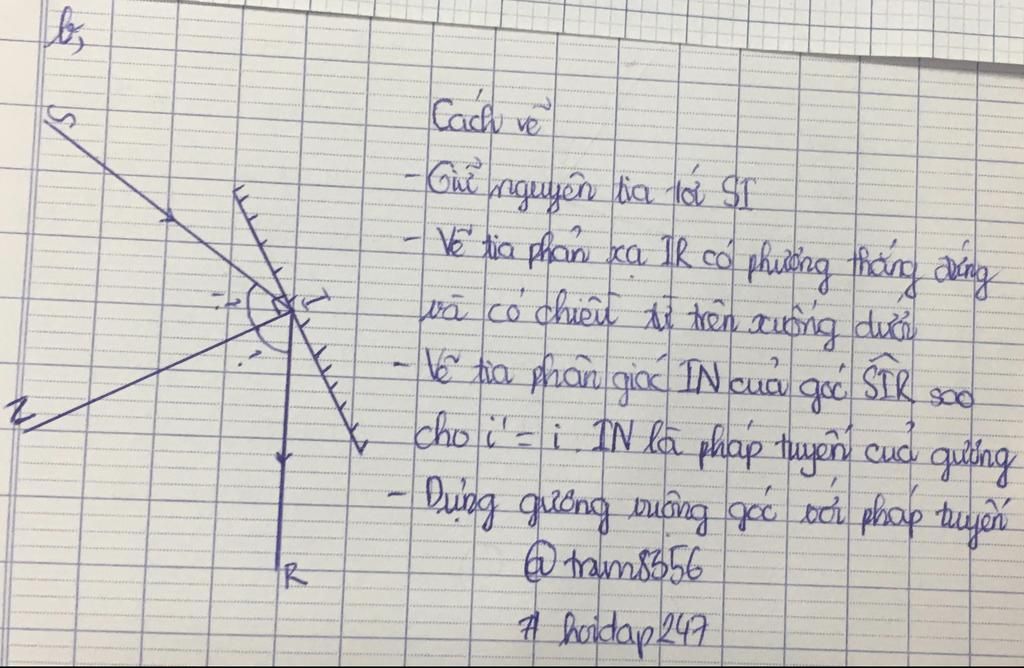 b,
S
Cách vẽ
- Giữ nguyên tia tới SI
- Vẽ tia phản xạ IR có phương thẳng đứng
và có chiều từ trên xuống dưới
I
i
i'
- Vẽ tia phân giác IN của góc SIR sao
N
cho i' = i. IN là pháp tuyến của gương
- Dựng gương vuông góc với pháp tuyến
R
@tram8356
# hoidap247